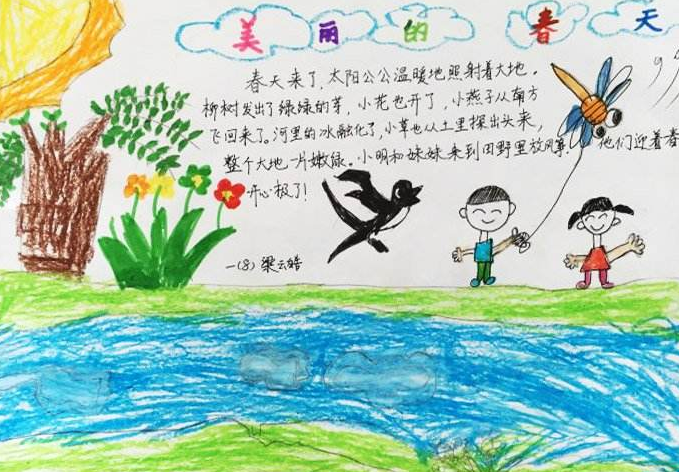 美丽的春天
春天来了,太阳公公温暖地照射着大地。
柳树发出了绿绿的芽,小花也开了,小燕子从南方
飞回来了。河里的冰融化了,小草也从土里探出头来,
整个大地一片嫩绿。小明和妹妹来到田野里放风筝。他们迎着春
开心极了!
一(8) 梁云皓